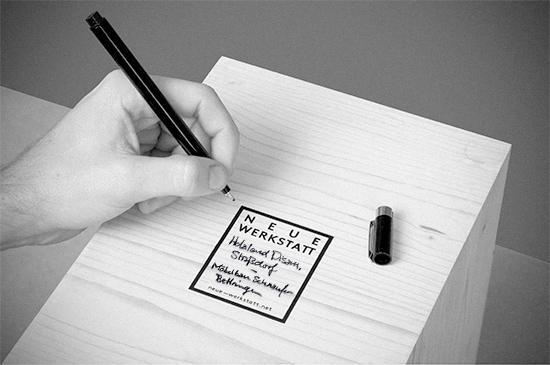 NEUE
WERKSTATT
Holzland Disam,
Straßdorf
–
Möbelbau Schmaufer
Bettringen
neue-werkstatt.net